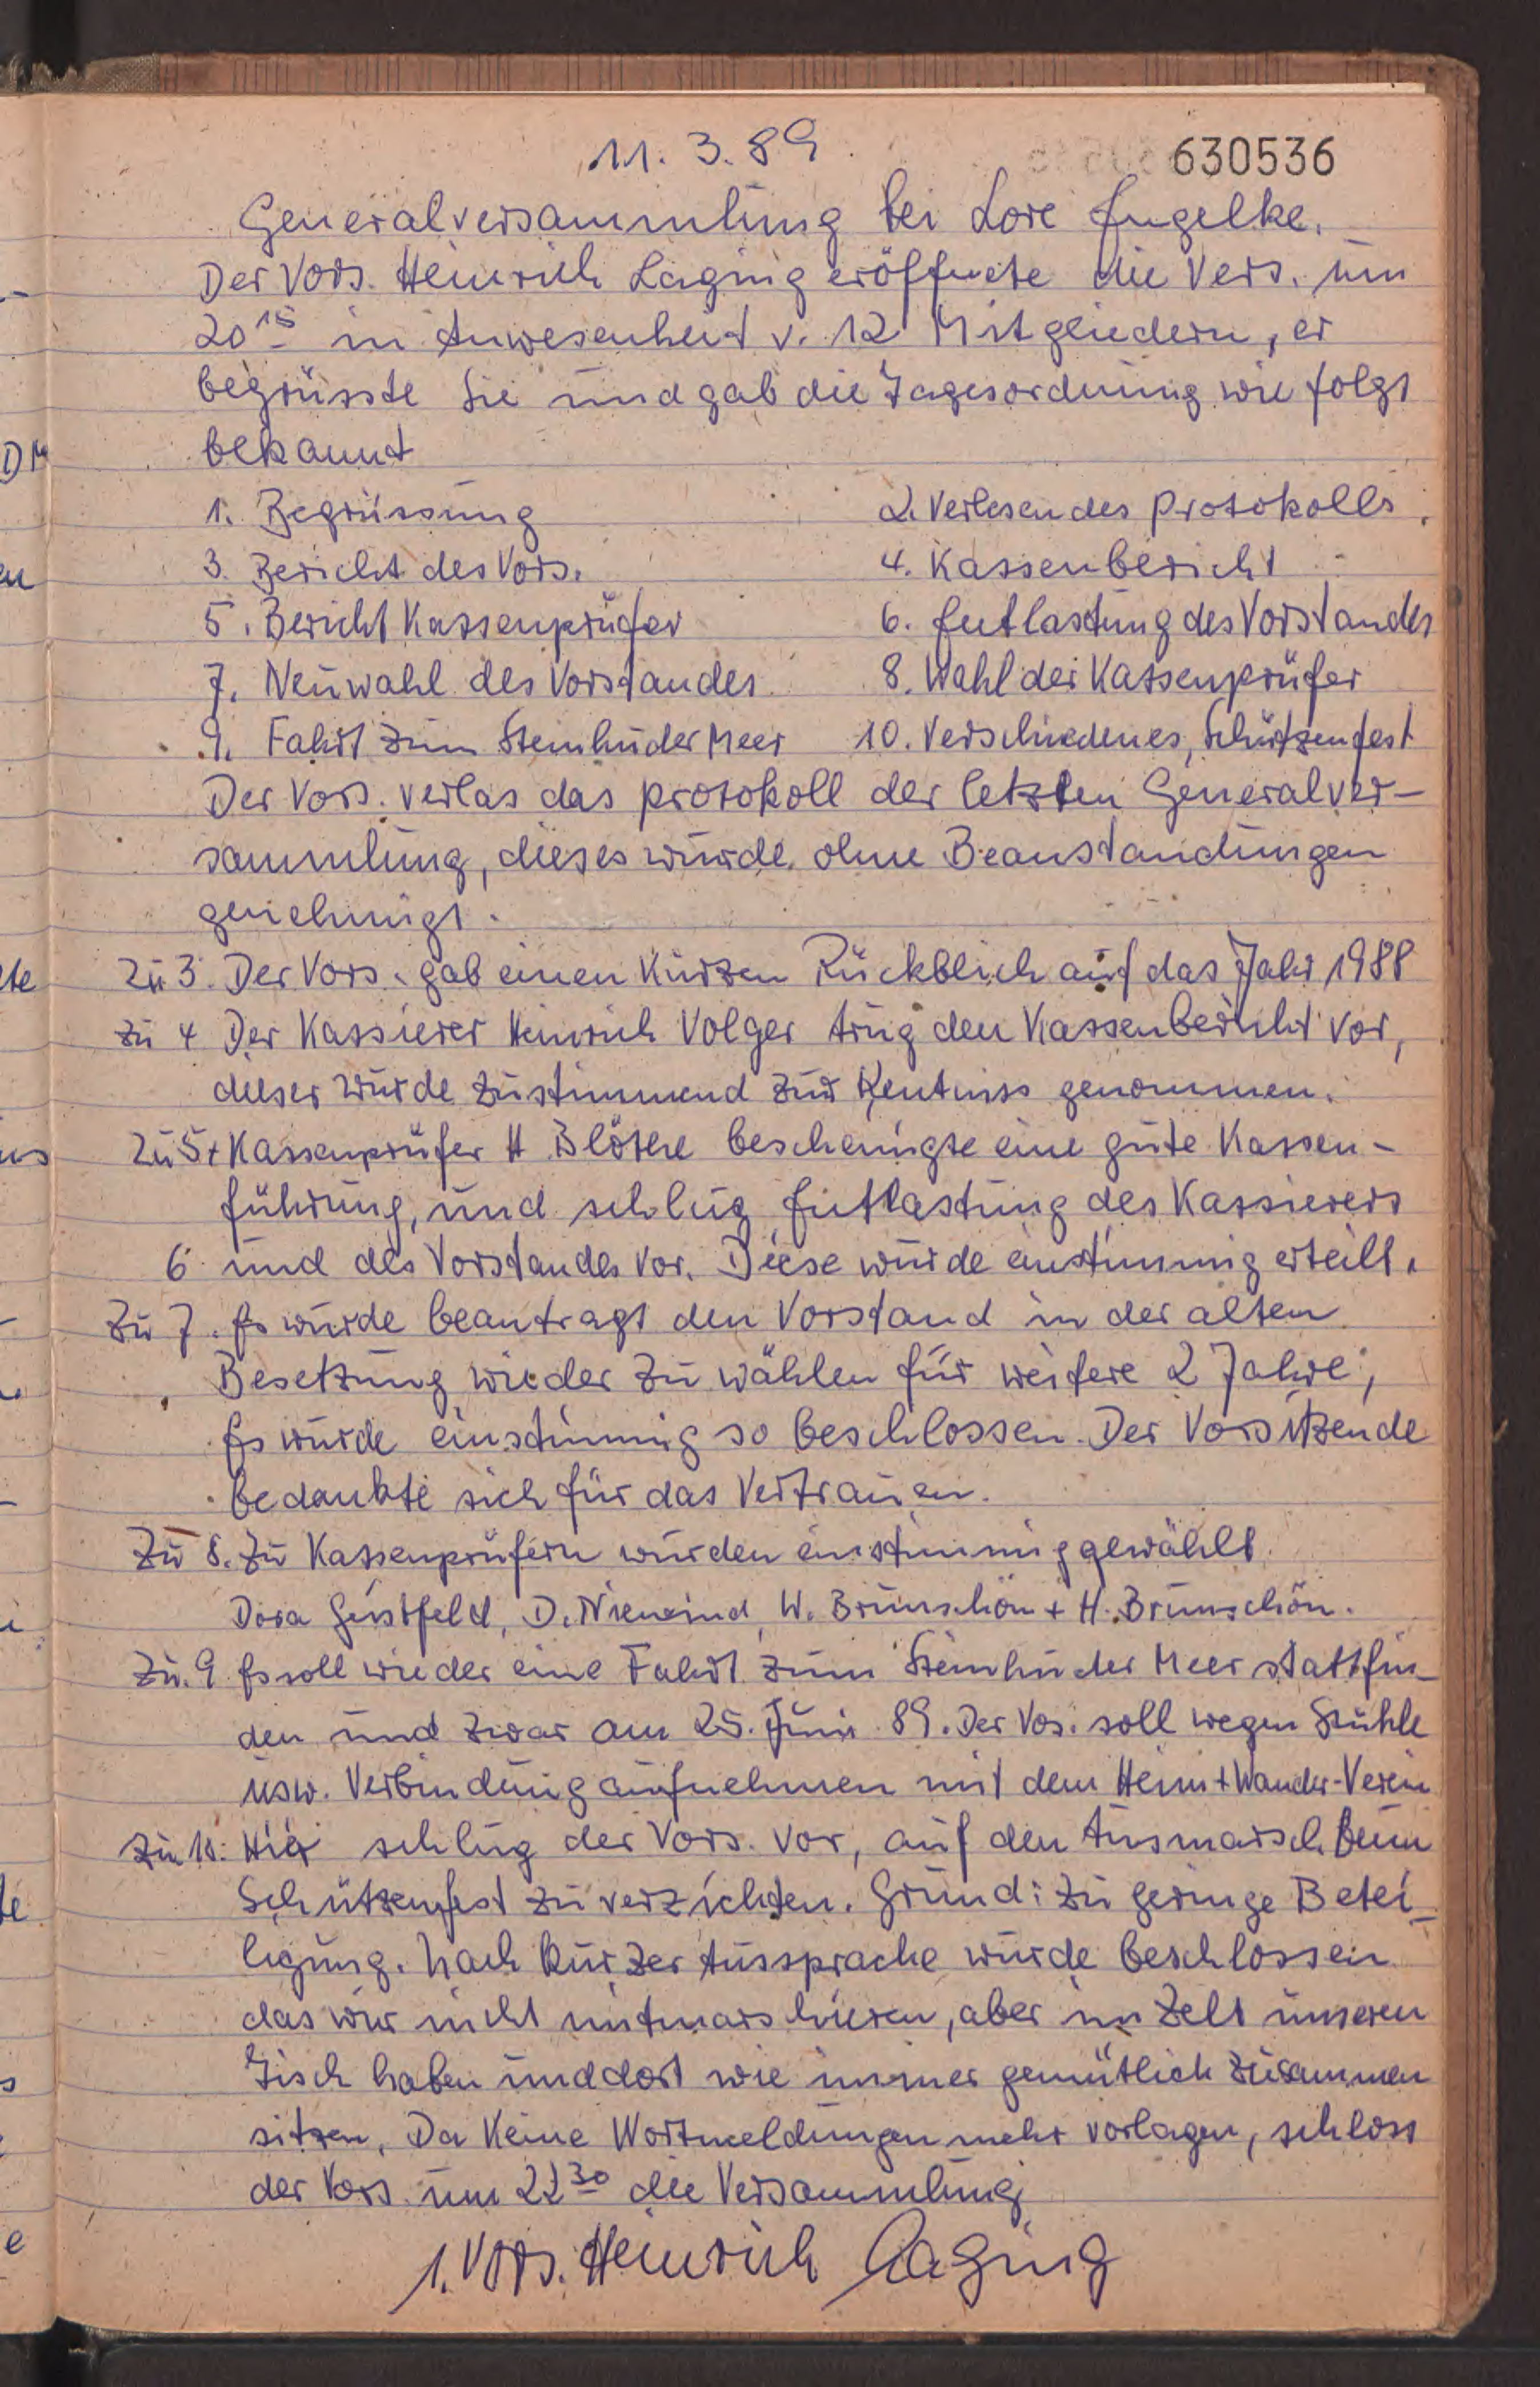 11. 3. 89
630536
Generalversammlung bei Lore Engelke.
Der Vors. Heinrich Laging eröffnete die Vers. um
20 15 in Anwesenheit v. 12 Mitgliedern, er
begrüsste Sie und gab die Tagesordnung wie folgt
bekannt
1. Begrüssung 2. Verlesen des Protokolls.
3. Bericht des Vors. 4. Kassenbericht
5. Bericht Kassenprüfer 6. Entlastung des Vorstandes
7. Neuwahl des Vorstandes 8. Wahl der Kassenprüfer
9. Fahrt zum Steinhuder Meer 10. Verschiedenes, Schützenfest
Der Vors. verlas das Protokoll der letzten Generalver-
sammlung, dieses wurde ohne Beanstandungen
genehmigt.
Zu 3. Der Vors. gab einen kurzen Rückblick auf das Jahr 1988
zu 4 Der Kassierer Heinrich Volger trug den Kassenbericht vor,
dieser wurde zustimmend zur Kentniss genommen.
Zu 5+ Kassenprüfer H Blöthe bescheinigte eine gute Kassen-
führung, und schlug Entlastung des Kassierers
6 und des Vorstandes vor. Diese wurde einstimmig erteilt.
Zu 7. Es wurde beantragt den Vorstand in der alten
Besetzung wieder zu wählen für weitere 2 Jahre,
Es wurde einstimmig so beschlossen. Der Vorsitzende
bedankte sich für das Vertrauen.
Zu 8. Zu Kassenprüfern wurden einstimmig gewählt
Dora Gerstfeld, D. W. Brünschön + H. Brünschön.
Zu. 9 Es soll wieder eine Fahrt zum Steinhuder Meer stattfin-
den und zwar am 25. Juni 89. Der Vos. soll wegen Stühle
usw. Verbindung aufnehmen mit dem Heim + Wander-Verein
Zu 10: Hier schlug der Vors. vor, auf den Ausmarsch beim
Schützenfest zu verzichten. Grund: zu geringe Betei-
ligung. Nach kurzer Aussprache wurde beschlossen
das wir nicht mitmarschieren, aber im Zelt unseren
Tisch haben und dort wie immer gemütlich zusammen
sitzen, Da keine Wortmeldungen mehr vorlagen, schloss
der Vors. um 22 30 die Versammlung
1. Vors. Heinrich Laging